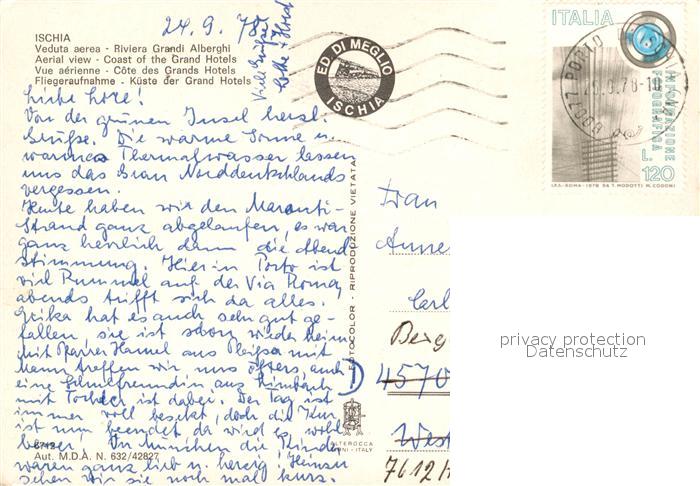 24. 9. 78
ISCHIA
Veduta aerea - Riviera Grandi Alberghi
Aerial view - Coast of the Grand Hotels
Vue aérienne - Côte des Grands Hotels
Fliegeraufnahme - Küste der Grand Hotels
Viele Grüße
Liebe Lore!
Von der grünen Insel herzl.
Grüße. Die warme Sonne u.
warmes Thermalwasser lassen
uns das Grau Norddeutschlands
vergessen.
Heute haben wir den Maronti-
Strand ganz abgelaufen, es war
ganz herrlich dann die Abend
Stimmung. Hier in Porto ist
viel Rummel auf der Via Roma,
abends trifft sich da alles.
hat es auch sehr gut ge-
fallen, sie ist schon wieder heim
mit Rainer aus
treffen wir uns öfters, auch
eine Schulfreundin aus
mit Tochter ist dabei. Der Tag ist
immer voll besetzt, doch die Kur
ist nun beendet da wird es wohl
besser. In München die Kinder
waren ganz lieb u. herzig.
sehen wir sie noch mal kurz.
6712
Aut. M.D.A. N. 632/42827
FOTOCOLOR - RIPRODUZIONE VIETATA
ALTEROCCA
TERNI - ITALY
ED. DI MEGLIO
ISCHIA
ITALIA
INFORMAZIONE
FOTOGRAFICA
L. 120
I.P.S.-ROMA-1978 DA T. MODOTTI M. CODONI
80077 PORTO D'ISCHIA
Frau
Anne
Carl
Berg
4570
West
7612
privacy protection
Datenschutz